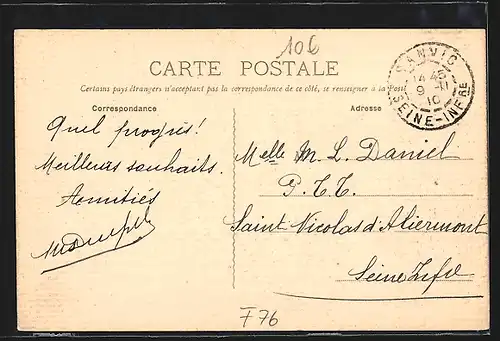 106
CARTE POSTALE
Certains pays étrangers n'acceptant pas la correspondance de ce côté, se renseigner à la Poste
SANVIC
14 45
9 -11
10
SEINE-INFRE
Correspondance
Adresse
Quel progrès!
Meilleurs souhaits.
Amitiés
Melle M. L. Daniel
P. T. T.
Saint Nicolas d'Aliermont
Seine Infre
F76